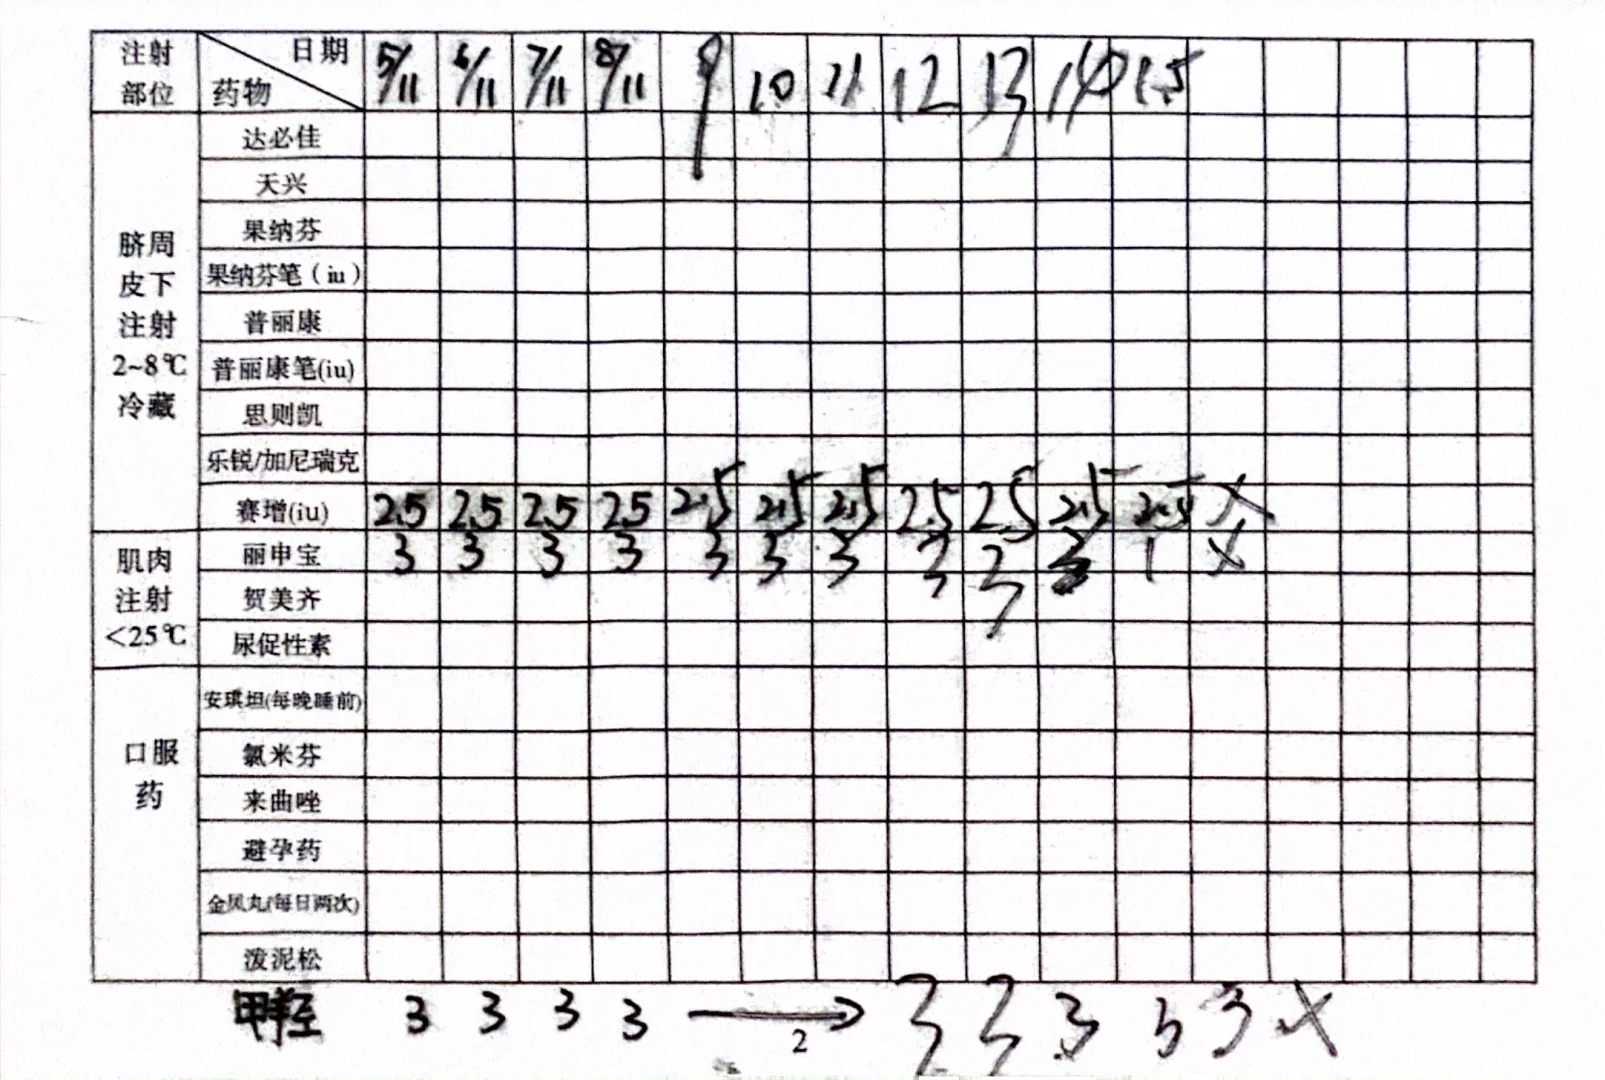 注射部位 日期 药物 5/11 6/11 7/11 8/11 9 10 11 12 13 14 15
脐周皮下注射2~8℃冷藏
达必佳
天兴
果纳芬
果纳芬笔（iu）
普丽康
普丽康笔(iu)
思则凯
乐锐/加尼瑞克
赛增(iu) 2.5 2.5 2.5 2.5 2.5 2.5 2.5 2.5 2.5 2.5 2.5 X
肌肉注射<25℃
丽申宝 3 3 3 3 3 3 3 3 3 3 1 X
贺美齐
尿促性素
口服药
安琪坦(每晚睡前)
氯米芬
来曲唑
避孕药
金凤丸(每日两次)
泼泥松
3 3 3 3 → 3 3 3 3 3 X
2